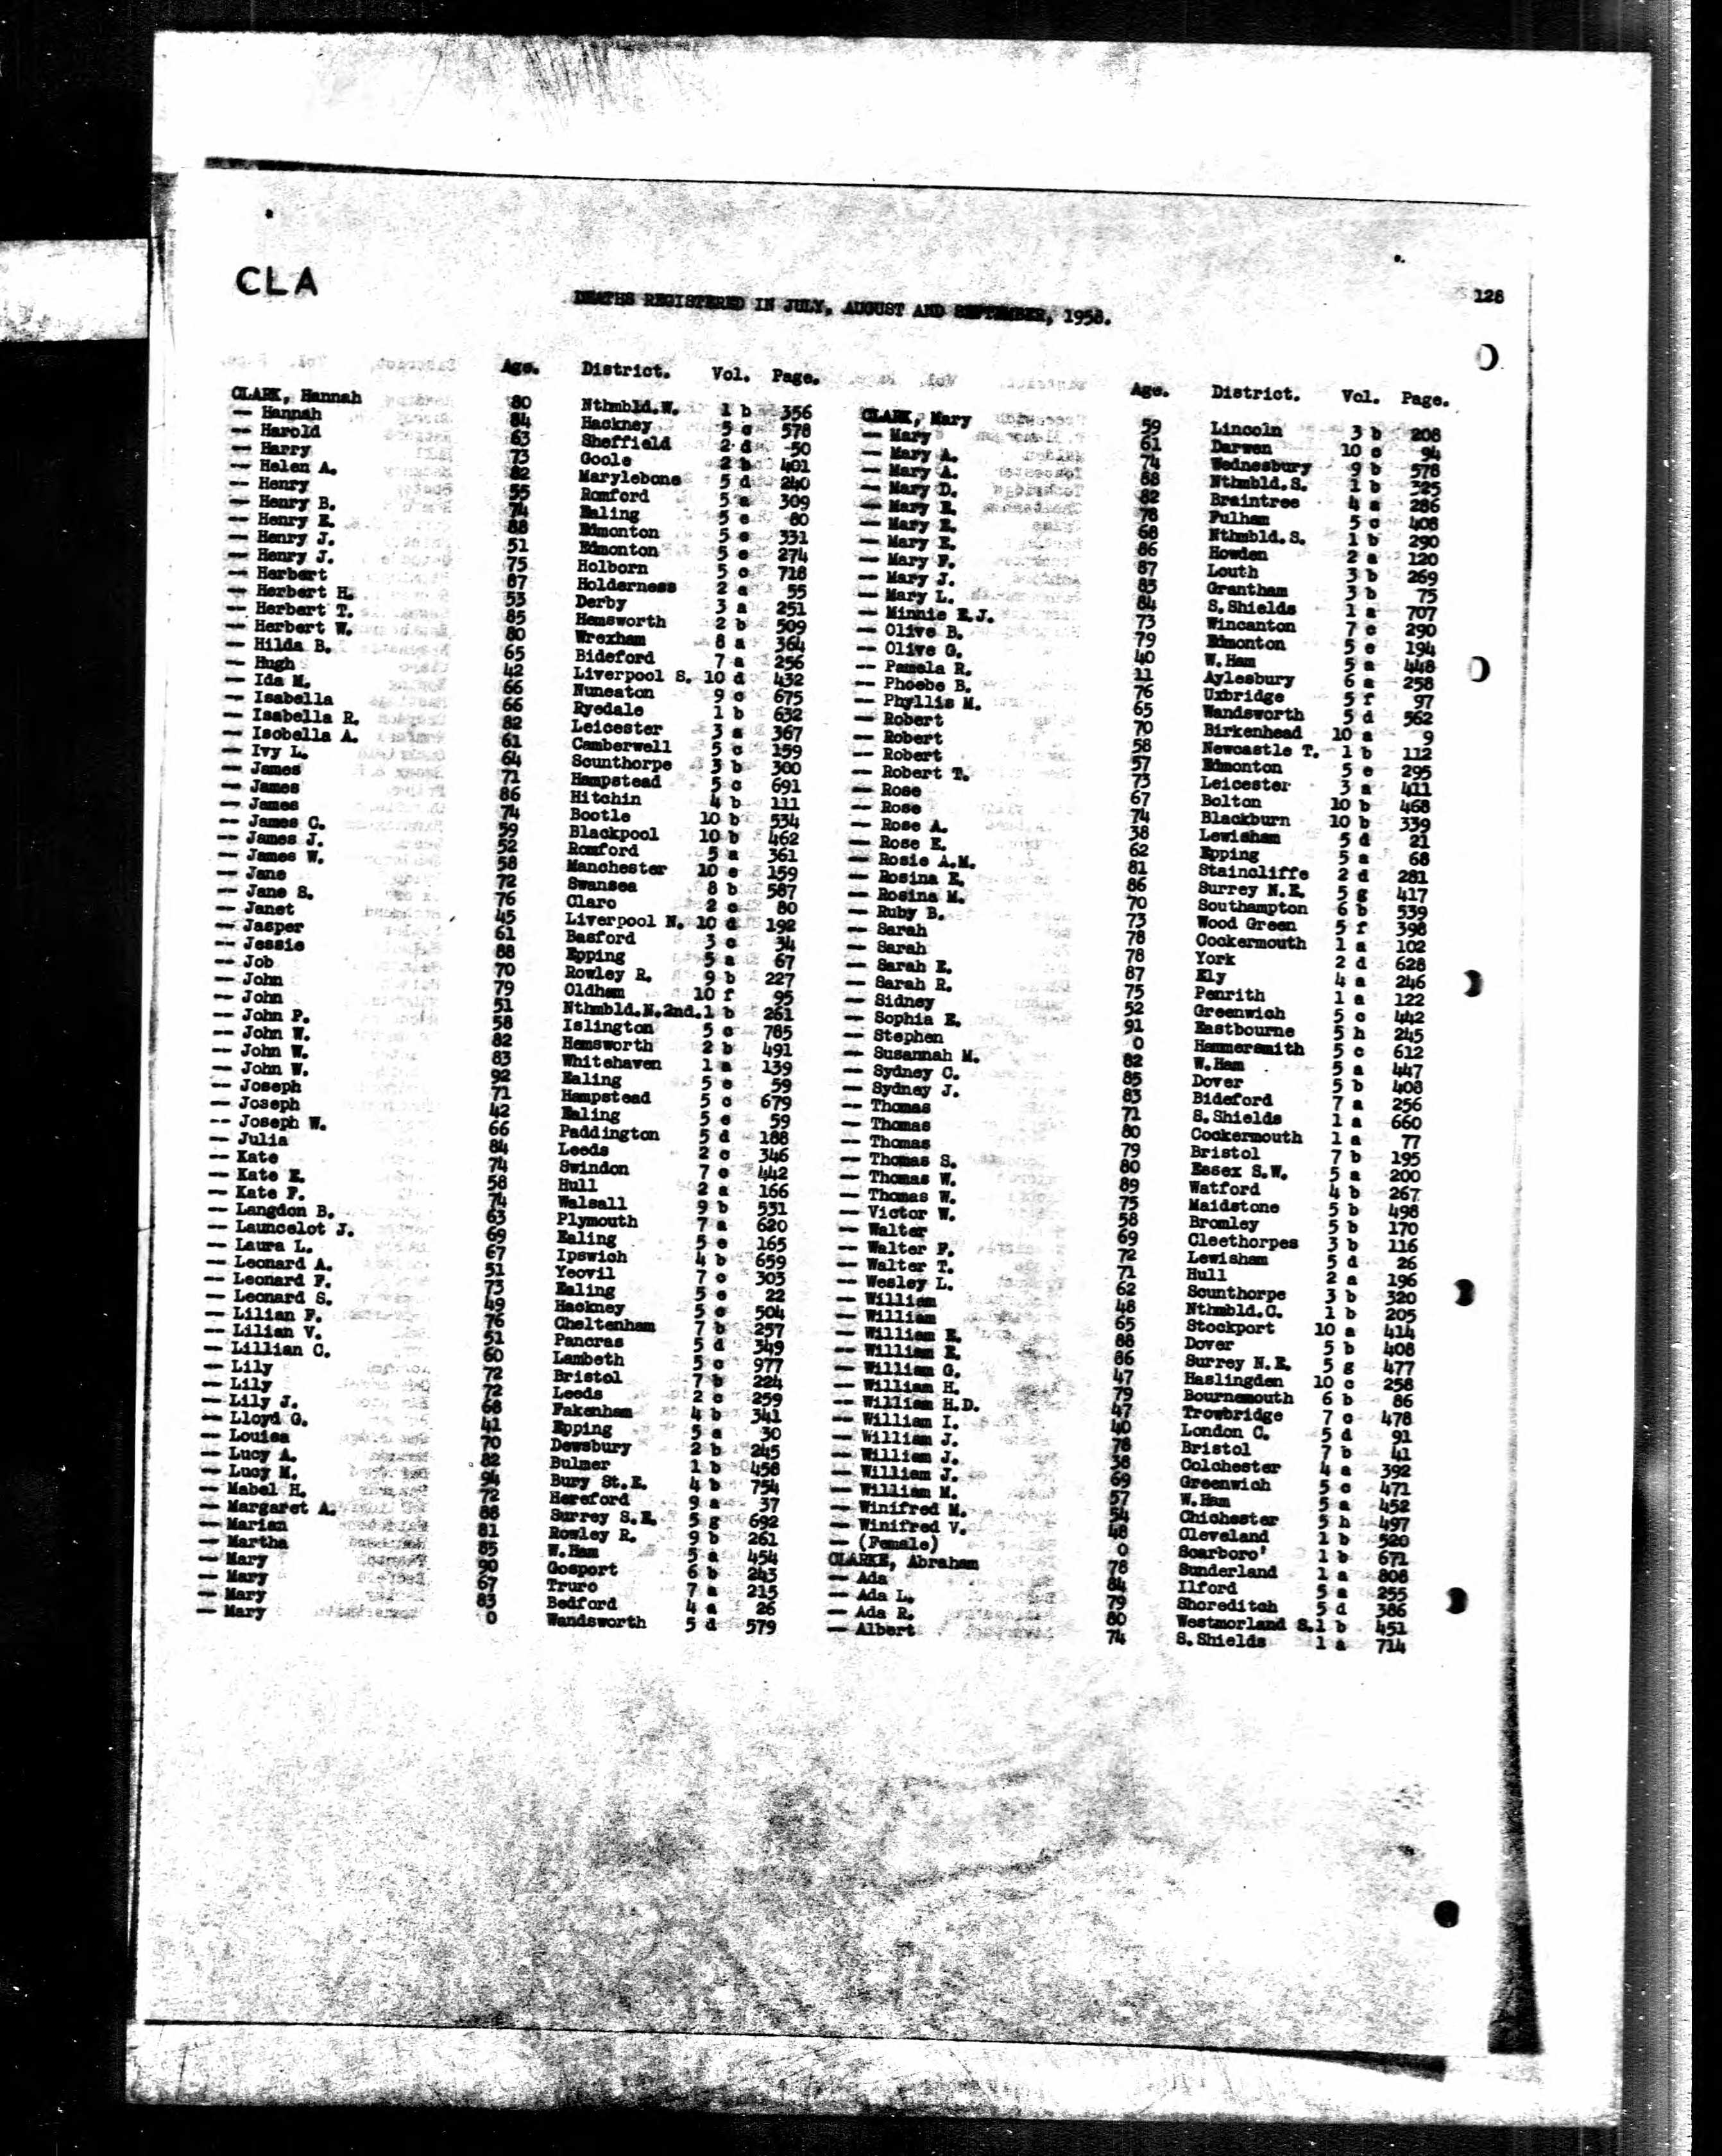 CLA
DEATHS REGISTERED IN JULY, AUGUST AND SEPTEMBER, 1958.
128
Age. District. Vol. Page.
CLARK, Hannah 80 Nthmbld.W. 1 b 356
— Hannah 84 Hackney 5 c 578
— Harold 63 Sheffield 2 d 50
— Harry 73 Goole 2 b 401
— Helen A. 82 Marylebone 5 d 240
— Henry 55 Romford 5 a 309
— Henry B. 74 Ealing 5 e 80
— Henry E. 88 Edmonton 5 e 331
— Henry J. 51 Edmonton 5 e 274
— Henry J. 75 Holborn 5 c 718
— Herbert 87 Holderness 2 a 55
— Herbert H. 53 Derby 3 a 251
— Herbert T. 85 Hemsworth 2 b 509
— Herbert W. 80 Wrexham 8 a 364
— Hilda B. 65 Bideford 7 a 256
— Hugh 42 Liverpool S. 10 d 432
— Ida M. 66 Nuneaton 9 c 675
— Isabella 66 Ryedale 1 b 632
— Isabella R. 82 Leicester 3 a 367
— Isobella A. 61 Camberwell 5 c 159
— Ivy L. 64 Scunthorpe 3 b 300
— James 71 Hampstead 5 c 691
— James 86 Hitchin 4 b 111
— James 74 Bootle 10 b 534
— James C. 59 Blackpool 10 b 462
— James J. 52 Romford 5 a 361
— James W. 58 Manchester 10 e 159
— Jane 72 Swansea 8 b 587
— Jane S. 76 Claro 2 c 80
— Janet 45 Liverpool N. 10 d 192
— Jasper 61 Basford 3 c 34
— Jessie 88 Epping 5 a 67
— Job 70 Rowley R. 9 b 227
— John 79 Oldham 10 f 95
— John 51 Nthmbld.N.2nd.1 b 261
— John P. 58 Islington 5 c 785
— John W. 82 Hemsworth 2 b 491
— John W. 83 Whitehaven 1 a 139
— John W. 92 Ealing 5 e 59
— Joseph 71 Hampstead 5 c 679
— Joseph 42 Ealing 5 e 59
— Joseph W. 66 Paddington 5 d 188
— Julia 84 Leeds 2 c 346
— Kate 74 Swindon 7 c 442
— Kate E. 58 Hull 2 a 166
— Kate F. 74 Walsall 9 b 531
— Langdon B. 63 Plymouth 7 a 620
— Launcelot J. 69 Ealing 5 e 165
— Laura L. 67 Ipswich 4 b 659
— Leonard A. 51 Yeovil 7 c 303
— Leonard F. 73 Ealing 5 e 22
— Leonard S. 49 Hackney 5 c 504
— Lilian F. 76 Cheltenham 7 b 257
— Lilian V. 51 Pancras 5 d 349
— Lillian C. 60 Lambeth 5 c 977
— Lily 72 Bristol 7 b 224
— Lily 72 Leeds 2 c 259
— Lily J. 68 Fakenham 4 b 341
— Lloyd G. 41 Epping 5 a 30
— Louisa 70 Dewsbury 2 b 245
— Lucy A. 82 Bulmer 1 b 458
— Lucy M. 94 Bury St.E. 4 b 754
— Mabel H. 72 Hereford 9 a 37
— Margaret A. 88 Surrey S.E. 5 g 692
— Marian 81 Rowley R. 9 b 261
— Martha 85 W.Ham 5 a 454
— Mary 90 Gosport 6 b 243
— Mary 67 Truro 7 a 215
— Mary 83 Bedford 4 a 26
— Mary 0 Wandsworth 5 d 579
Age. District. Vol. Page.
CLARK, Mary 59 Lincoln 3 b 208
— Mary 61 Darwen 10 c 94
— Mary A. 74 Wednesbury 9 b 578
— Mary A. 88 Nthmbld.S. 1 b 325
— Mary D. 82 Braintree 4 a 286
— Mary E. 78 Fulham 5 c 408
— Mary E. 68 Nthmbld.S. 1 b 290
— Mary E. 86 Howden 2 a 120
— Mary F. 87 Louth 3 b 269
— Mary J. 83 Grantham 3 b 75
— Mary L. 84 S.Shields 1 a 707
— Minnie E.J. 73 Wincanton 7 c 290
— Olive B. 79 Edmonton 5 e 194
— Olive G. 40 W.Ham 5 a 448
— Pamela R. 11 Aylesbury 6 a 258
— Phoebe B. 76 Uxbridge 5 f 97
— Phyllis M. 65 Wandsworth 5 d 562
— Robert 70 Birkenhead 10 a 9
— Robert 58 Newcastle T. 1 b 112
— Robert 57 Edmonton 5 e 295
— Robert T. 73 Leicester 3 a 411
— Rose 67 Bolton 10 b 468
— Rose 74 Blackburn 10 b 339
— Rose A. 38 Lewisham 5 d 21
— Rose E. 62 Epping 5 a 68
— Rosie A.M. 81 Staincliffe 2 d 281
— Rosina E. 86 Surrey N.E. 5 g 417
— Rosina M. 70 Southampton 6 b 539
— Ruby B. 73 Wood Green 5 f 398
— Sarah 78 Cockermouth 1 a 102
— Sarah 78 York 2 d 628
— Sarah E. 87 Ely 4 a 246
— Sarah R. 75 Penrith 1 a 122
— Sidney 52 Greenwich 5 c 442
— Sophia E. 91 Eastbourne 5 h 245
— Stephen 0 Hammersmith 5 c 612
— Susannah M. 82 W.Ham 5 a 447
— Sydney C. 85 Dover 5 b 408
— Sydney J. 83 Bideford 7 a 256
— Thomas 71 S.Shields 1 a 660
— Thomas 80 Cockermouth 1 a 77
— Thomas 79 Bristol 7 b 195
— Thomas S. 80 Essex S.W. 5 a 200
— Thomas W. 89 Watford 4 b 267
— Thomas W. 75 Maidstone 5 b 498
— Victor W. 58 Bromley 5 b 170
— Walter 69 Cleethorpes 3 b 116
— Walter F. 72 Lewisham 5 d 26
— Walter T. 71 Hull 2 a 196
— Wesley L. 62 Scunthorpe 3 b 320
— William 48 Nthmbld.C. 1 b 205
— William 65 Stockport 10 a 414
— William E. 88 Dover 5 b 408
— William E. 86 Surrey N.E. 5 g 477
— William G. 47 Haslingden 10 c 258
— William H. 79 Bournemouth 6 b 86
— William H.D. 47 Trowbridge 7 c 478
— William I. 40 London C. 5 d 91
— William J. 78 Bristol 7 b 41
— William J. 38 Colchester 4 a 392
— William J. 69 Greenwich 5 c 471
— William M. 57 W.Ham 5 a 452
— Winifred M. 54 Chichester 5 h 497
— Winifred V. 48 Cleveland 1 b 520
— (Female) 0 Scarboro' 1 b 671
CLARKE, Abraham 78 Sunderland 1 a 808
— Ada 84 Ilford 5 a 255
— Ada L. 79 Shoreditch 5 d 386
— Ada R. 80 Westmorland S.1 b 451
— Albert 74 S.Shields 1 a 714